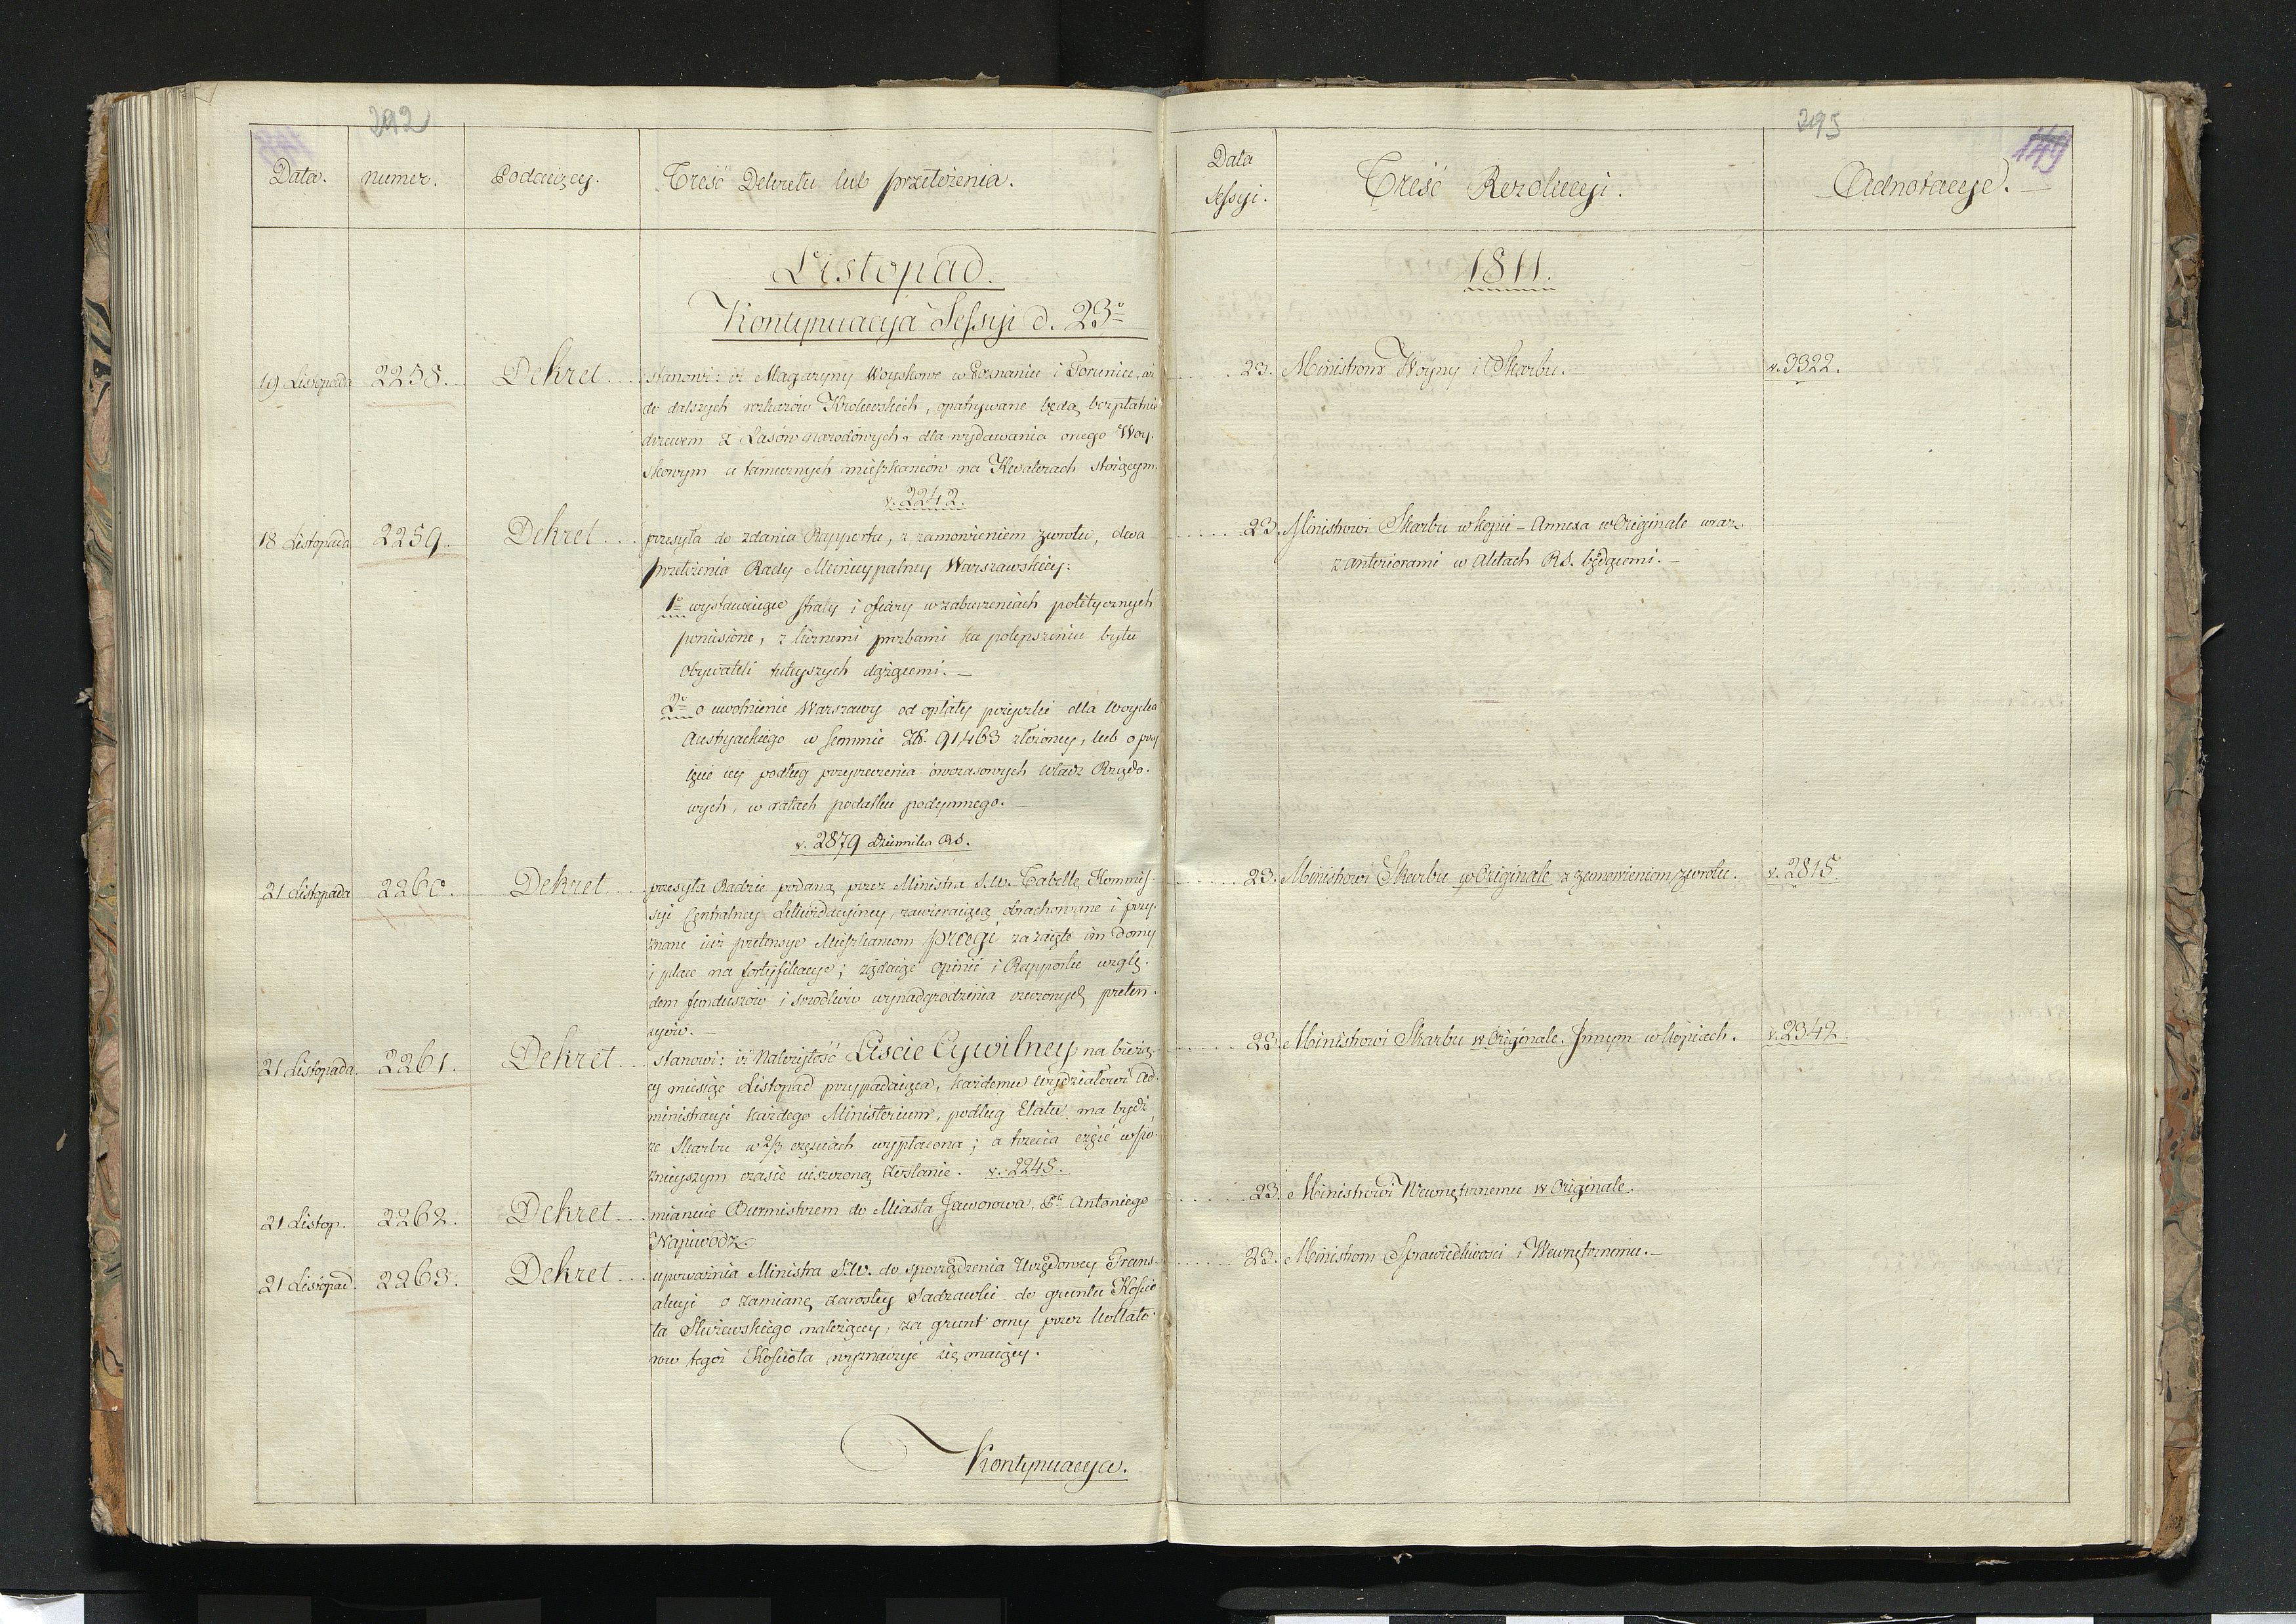 292
Data.
numer.
Podaiący.
Treść Dekretu lub przełożenia.
Listopad.
Kontynuacya Sessyi d. 23º
19 Listopada 2258. Dekret
stanowi: iż Magazyny Woyskowe w Poznaniu i Toruniu, aż
do dalszych rozkazów Krolewskich, opatrywane będą bezpłatnie
drzewem z Lasów narodowych, dla wydawania onego Woy-
skowym u tamecznych mieszkańców na Kwaterach stoiącym.
v. 2242.
18 Listopada 2259. Dekret
przesyła do zdania Rapportu, z zamowieniem zwrotu, dwa
przełożenia Rady Municypalney Warszawskiey:
1º wystawuiące straty i ofiary w zaburzeniach politycznych
poniesione, z licznemi prozbami ku polepszeniu bytu
Obywateli tuteyszych dążącemi. —
2º o uwolnienie Warszawy od opłaty pożyczki dla Woyska
Austryackiego w summie Zł. 91463 złożoney, lub o przy
ięcie iey podług przyrzeczenia ówczasowych Władz Rządo-
wych, w ratach podatku podymnego. —
v. 2879 Dziennika RS.
21 Listopada 2260. Dekret
przesyła Radzie podaną przez Ministra S.W. Tabellę Kommis-
syi Centralney Likwidacyiney, zawieraiącą obrachowane i przy-
znane iuż pretensye Mieszkańcom Pragi za zaięte im domy
i place na fortyfikacye; żądaiąc opinii i Rapportu wzglę-
dem funduszów i srodków wynadgrodzenia rzeczonych preten-
syów. —
21 Listopada 2261. Dekret
stanowi: iż Należytość Liscie Cywilney na bieżą-
cy miesiąc Listopad przypadaiąca, każdemu wydziałowi Ad-
ministracyi każdego Ministerium, podług Etatu ma bydź
ze Skarbu w 2/3 częsciach wypłacona; a trzecia część w pó-
znieyszym czasie uiszczoną zostanie. v. 2248.
21 Listop. 2262. Dekret
mianuie Burmistrzem do Miasta Jaworowa, Pa Antoniego
Napiwodz.
21 Listopad. 2263. Dekret
upoważnia Ministra S.W. do sporządzenia Urzędowey Trans-
akcyi o zamianę zarosłey Sadzawki do gruntu Kościo
ła Służewskiego należącey, za grunt orny przez Kollato-
rów tegoż Kościoła wyznaczyć się maiący.
Kontynuacya.
293
149
Data
Sessyi.
Treść Rezolucyi.
Adnotacye. —
1811.
23. Ministrom Woyny i Skarbu. v. 3322.
23. Ministrowi Skarbu w kopii — Annexa w Originale wraz
z anteriorami w Aktach RS. będącemi. —
23. Ministrowi Skarbu w Originale z zamowieniem zwrotu. v. 2815.
23. Ministrowi Skarbu w Originale. Jnnym w kopiach. v. 2342.
23. Ministrowi Wewnętrznemu w Originale.
23. Ministrom Sprawiedliwości i Wewnętrznemu. —